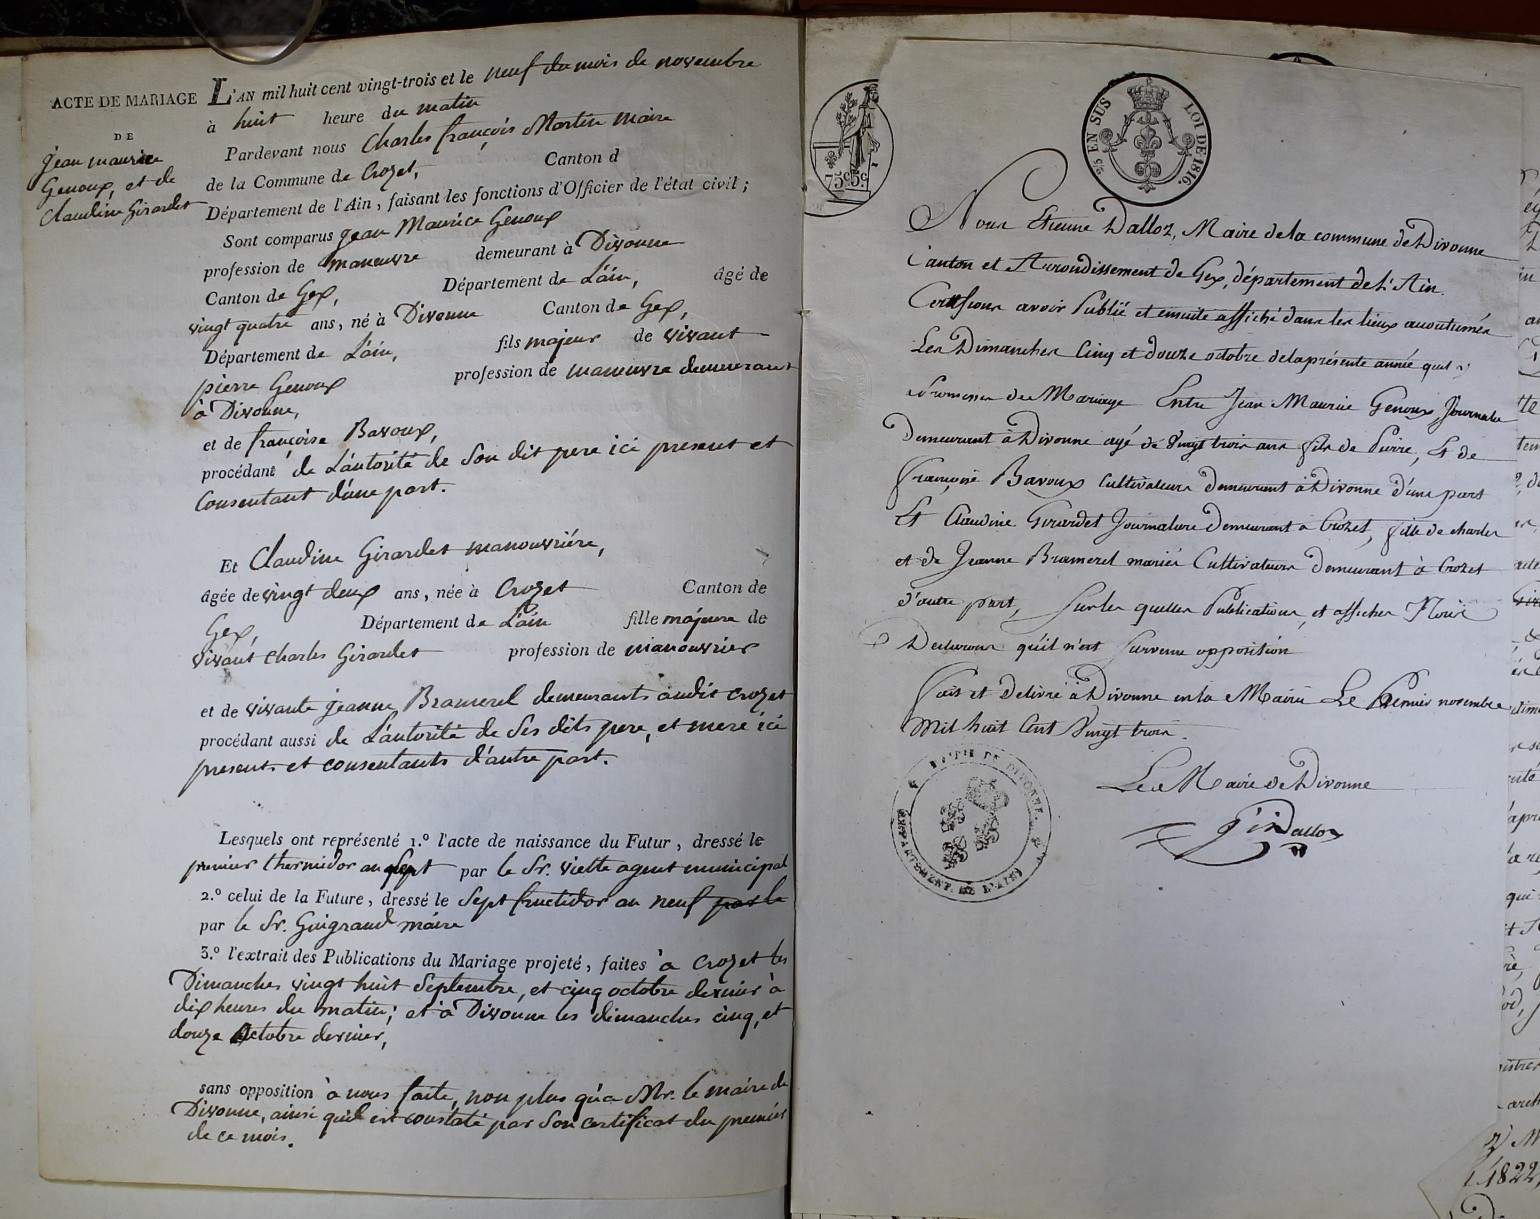 ACTE DE MARIAGE
DE
Jean maurice
Genoux, et de
Claudine Girardet
L'AN mil huit cent vingt-trois et le neuf du mois de novembre
à huit heure du matin
Pardevant nous Charles françois Martin Maire
de la Commune de Crozet, Canton d
Département de l'Ain, faisant les fonctions d'Officier de l'état civil;
Sont comparus Jean Maurice Genoux
profession de manœuvre demeurant à Divonne
Canton de Gex, Département de L'ain, âgé de
vingt quatre ans, né à Divonne Canton de Gex,
Département de L'ain, fils majeur de vivant
pierre Genoux profession de manœuvre demeurant
à Divonne,
et de françoise Bavoux,
procédant de L'autorité de Son dit pere ici present et
Consentant d'une part.
Et Claudine Girardet manouvrière,
âgée de vingt deux ans, née à Crozet Canton de
Gex, Département de L'ain fille majeure de
vivant Charles Girardet profession de manouvrier
et de vivante jeanne Bramerel demeurants audit Crozet
procédant aussi de L'autorité de Ses dits pere, et mere ici
presents et consentants d'autre part.
Lesquels ont représenté 1.º l'acte de naissance du Futur, dressé le
premier thermidor an sept par le Sr. Viette agent municipal
2.º celui de la Future, dressé le Sept fructidor an neuf par le
par le Sr. Guigraud maire
3.º l'extrait des Publications du Mariage projeté, faites à Crozet les
Dimanches vingt huit Septembre, et cinq octobre dernier à
dix heures du matin; et à Divonne les dimanches cinq, et
douze Octobre dernier,
sans opposition à nous faite, non plus qu'a Mr. le maire de
Divonne, ainsi qu'il est constaté par Son certificat du premier
de ce mois.
75c 5c
3/5 EN SUS LOI DE 1816.
Nous Etienne Dalloz, Maire de la commune de Divonne
Canton et Arrondissement de Gex, département de L'Ain.
Certifions avoir Publié et ensuite affiché dans les lieux accoutumés
Les Dimanches Cinq et douze octobre de la présente année que les
Promesses de Mariage Entre Jean Maurice Genoux, Journalier
Demeurant à Divonne agé de Vingt trois ans fils de Pierre, Et de
françoise Bavoux Cultivateurs Demeurant à Divonne d'une part
Et Claudine Girardet Journaliere Demeurant à Crozet, fille de charles
et de Jeanne Bramerel mariés Cultivateurs demeurant à Crozet
d'autre part, Sur les quelles Publications, et affiches Nous
Declarons qu'il n'est Survenu opposition
fait et Delivré à Divonne en la Mairie Le Premier novembre
Mil huit Cent Vingt trois.
Le Maire de Divonne
Dalloz
MAIRIE DE DIVONNE.
DEPARTEMENT DE L'AIN
1822,